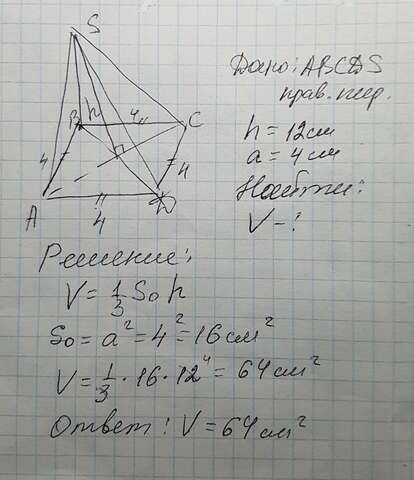 S
B h 4 C
4 4
A 4 D
Дано: ABCDS
прав. пир.
h = 12 см
a = 4 см
Найти:
V - ?
Решение:
V = 1/3 So h
So = a² = 4² = 16 см²
V = 1/3 · 16 · 12⁴ = 64 см²
Ответ: V = 64 см²